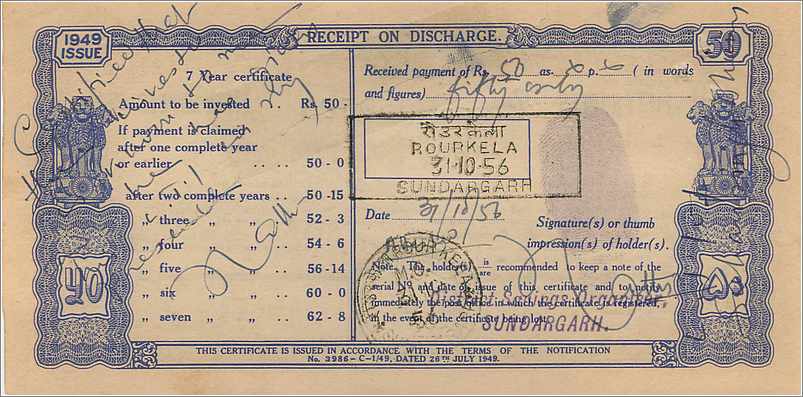 1949
ISSUE
RECEIPT ON DISCHARGE.
50
7 Year certificate
Amount to be invested .. Rs. 50 -
If payment is claimed
after one complete year
or earlier .. .. 50 - 0
after two complete years .. 50 -15
„ three „ „ 52 - 3
„ four „ „ 54 - 6
„ five „ „ 56 -14
„ six „ „ 60 - 0
„ seven „ „ 62 - 8
Received payment of Rs. 50 as. x p. x ( in words
and figures) fifty only
रौउरकेला
ROURKELA
31·10·56
SUNDARGARH
Date 31/10/56
Signature(s) or thumb
impression(s) of holder(s).
Note. The holder(s) is/are recommended to keep a note of the
serial No. and date of issue of this certificate and to notify
immediately the post office in which the certificate is registered,
in the event of the certificate being lost.
District Savings Organiser
SUNDARGARH.
५०
THIS CERTIFICATE IS ISSUED IN ACCORDANCE WITH THE TERMS OF THE NOTIFICATION
No. 3986-C-1/49, DATED 26TH JULY 1949.